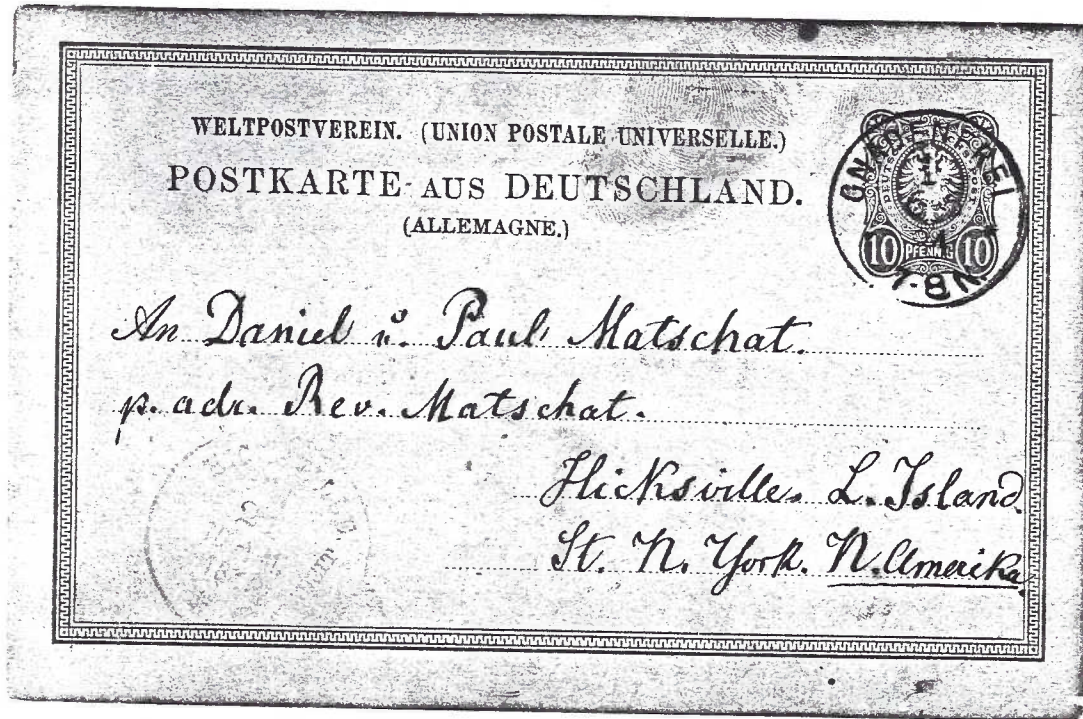 WELTPOSTVEREIN. (UNION POSTALE UNIVERSELLE.)
POSTKARTE AUS DEUTSCHLAND.
(ALLEMAGNE.)
GNADENFREI
DEUTSCHE POST
10 PFENNIG 10
7-8 N.
An Daniel u. Paul Matschat.
p. adr. Rev. Matschat.
Hicksville. L. Island.
St. N. York. N. Amerika